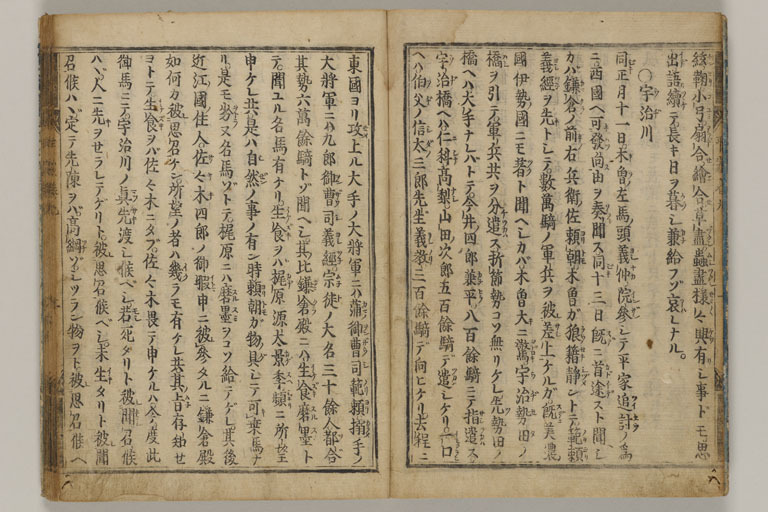 絵鞠小弓扇合繪合草盡蟲盡様々興有シ事トモ思
出語續テ長キ日ヲ暮シ兼給フゾ哀レナル。
○宇治川
同正月十一日木曽左馬頭義仲院參シテ平家追討ノ爲
ニ西國ヘ可發尚由ヲ奏聞ス同十三日既ニ首途スト聞シ
カバ鎌倉ノ前右兵衛佐頼朝木曽ガ狼藉静ントテ範頼
義經ヲ先トシテ數萬騎ノ軍兵ヲ被差上ケルガ既美濃
國伊勢國ニモ著ト聞ヘシカバ木曽大ニ驚宇治勢田ノ
橋ヲ引テ軍兵共ヲ分遣ス折節勢コソ無リケレ先勢田ノ
橋ヘハ大手ナレバトテ今井四郎兼平八百餘騎ニテ指遣ス
宇治橋ヘハ仁科高梨山田次郎五百餘騎デ遣シケリ一口
ヘハ伯父ノ信太三郎先生義教三百餘騎デ向ヒケリ去程ニ
東國ヨリ攻上ル大手ノ大將軍ニハ蒲御曹司範頼搦手ノ
大將軍ニハ九郎御曹司義經宗徒ノ大名三十餘人都合
其勢六萬餘騎トゾ聞ヘシ其比鎌倉殿ニハ生食磨墨ト
テ聞ユル名馬有ケリ生食ヲバ梶原源太景季頻ニ所望
申ケレ共是ハ自然ノ事ノ有ン時頼朝ガ物具シテ可乗馬ナ
リ是モ劣ヌ名馬ゾトテ梶原ニハ磨墨ヲコソ給テゲレ其後
近江國住人佐々木四郎ノ御暇申ニ被參タルニ鎌倉殿
如何カ被思召ケン所望ノ者ハ幾ラモ有ケレ共其旨存知セ
ヨトテ生食ヲバ佐々木ニタブ佐々木畏テ申ケルハ今度此
御馬ニテ宇治川ノ眞先渡シ候ベシ若死タリト被聞召候
ハヾ人ニ先ヲセラレテゲリト被思召候ベシ未生タリト被聞
召候ハヾ定テ先陳ヲバ高綱ゾシツラン物ヲト被思召候ヘ